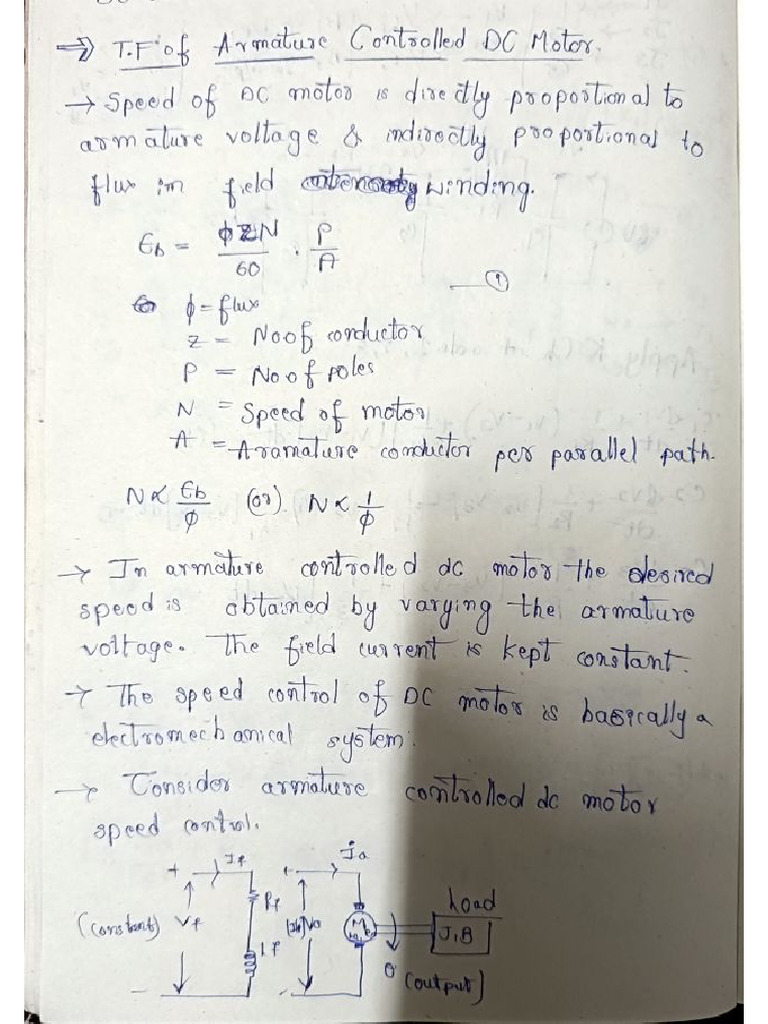 ⇒ T.F of Armature Controlled DC Motor.
→ Speed of DC motor is directly proportional to
armature voltage & indirectly proportional to
flux in field winding.
Eb = ϕZN/60 . P/A
— ①
ϕ = flux
Z = No of conductor
P = No of poles
N = Speed of motor
A = Aramature conductor per parallel path.
N ∝ Eb/ϕ (or) N ∝ 1/ϕ
→ In armature controlled dc motor the desired
speed is obtained by varying the armature
voltage. The field current is kept constant.
→ The speed control of DC motor is basically a
electromechanical system.
→ Consider armature controlled dc motor
speed control.
+ If + Ia
Rf Load
(constant) Vf Va M J,B
Lf
θ (output)
- -